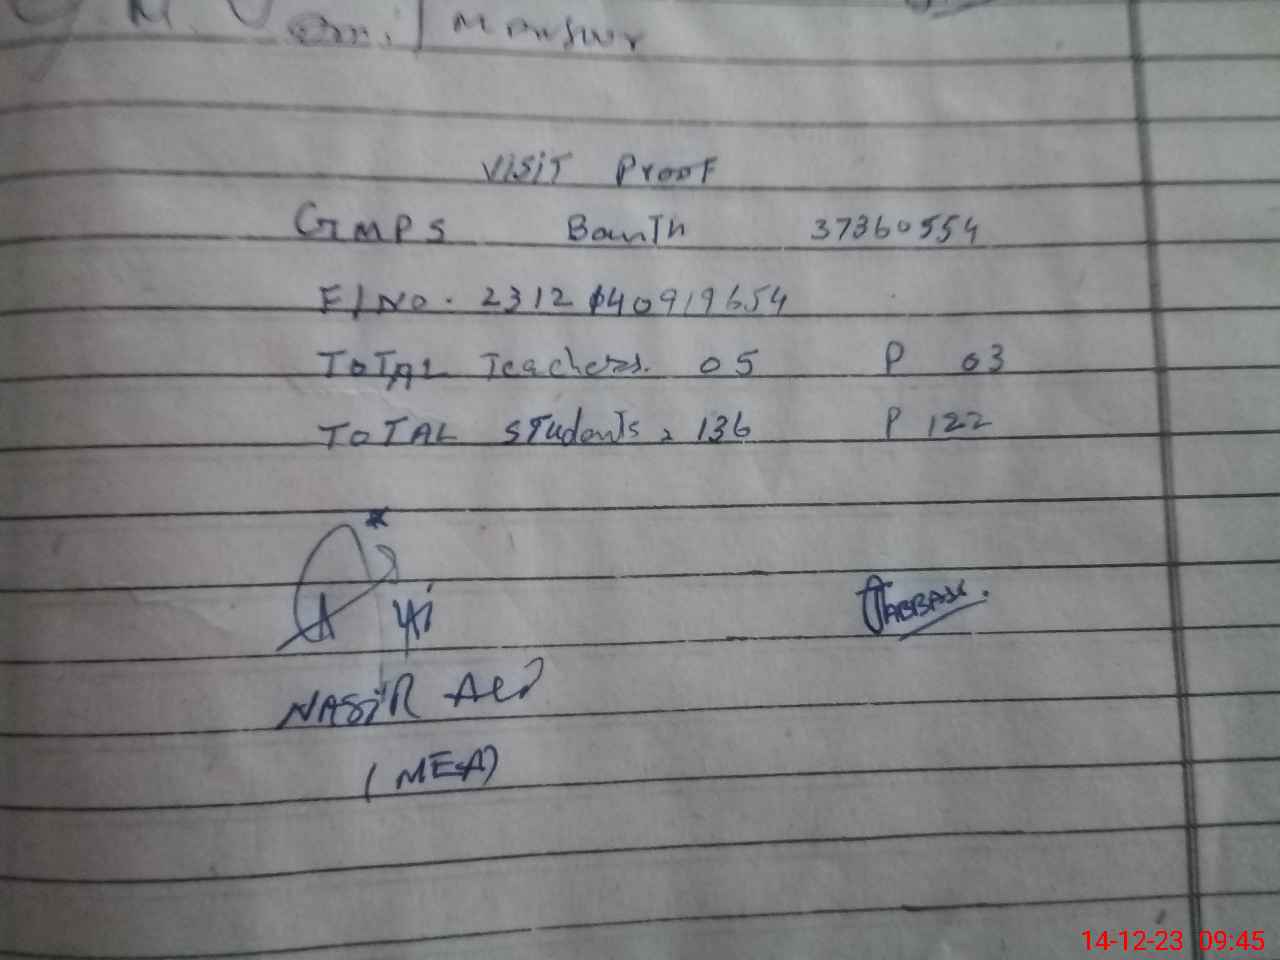 Mansur
Visit Proof
GMPS Banth 37360554
F/No. 2312140919654
TOTAL Teachers. 05 P 03
TOTAL Students, 136 P 122
ABBASI.
NASIR Ali
(MEA)
14-12-23 09:45